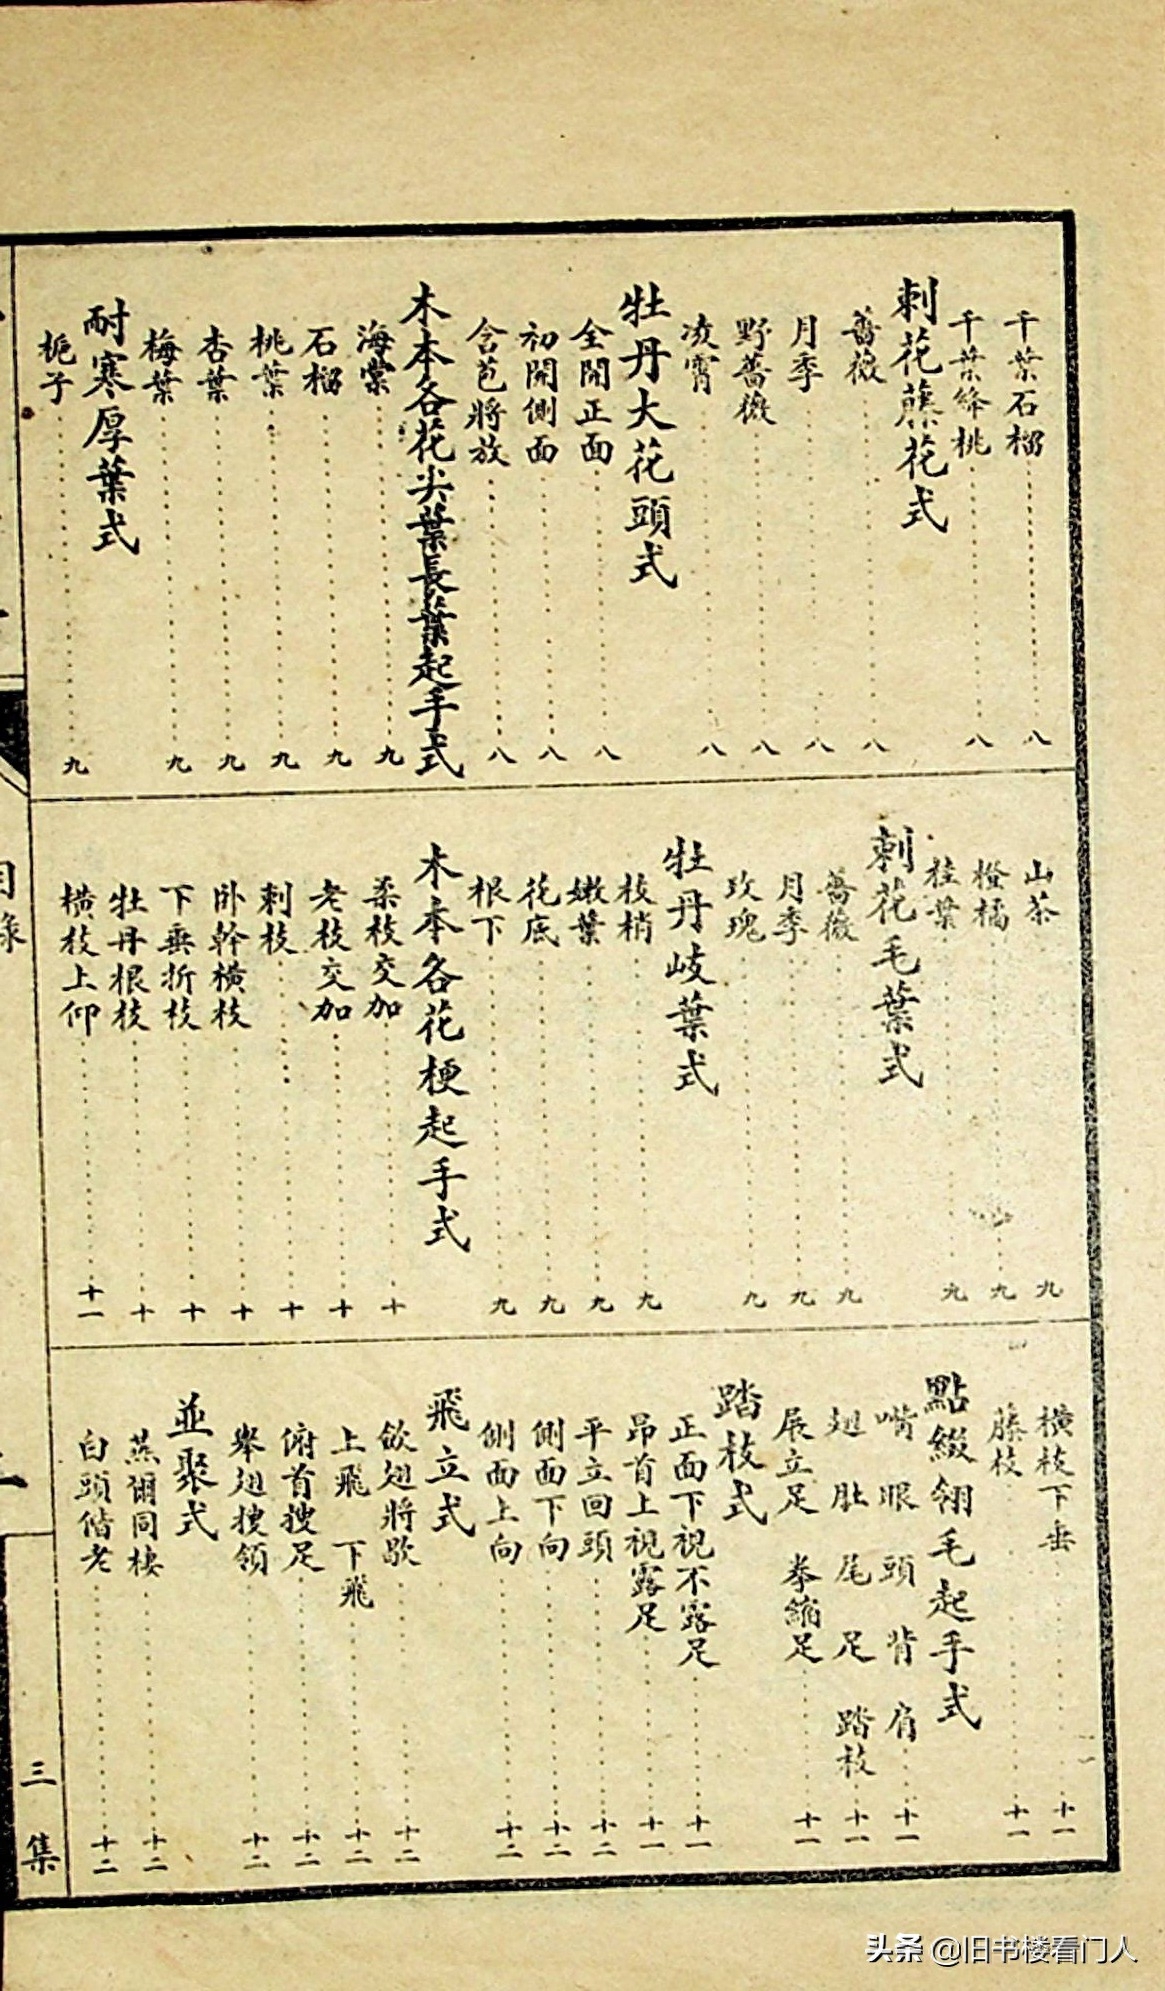 千葉石榴 八
千葉絳桃 八
刺花藤花式
薔薇 八
月季 八
野薔薇 八
凌霄 八
牡丹大花頭式
全開正面 八
初開側面 八
含苞將放 八
木本各花尖葉長葉起手式
海棠 九
石榴 九
桃葉 九
杏葉 九
梅葉 九
耐寒厚葉式
梔子 九
山茶 九
橙橘 九
桂葉 九
刺花毛葉式
薔薇 九
月季 九
玫瑰 九
牡丹岐葉式
枝梢 九
嫩葉 九
花底 九
根下 九
木本各花梗起手式
柔枝交加 十
老枝交加 十
刺枝 十
卧幹橫枝 十
下垂折枝 十
牡丹根枝 十
橫枝上仰 十一
橫枝下垂 十一
藤枝 十一
點綴翎毛起手式
嘴 眼 頭 背 肩 十一
翅 肚 尾 足 踏枝 十一
展立足 拳縮足 十一
踏枝式
正面下視不露足 十一
昂首上視露足 十一
平立回頭 十二
側面下向 十二
側面上向 十二
飛立式
斂翅將歇 十二
上飛 下飛 十二
俯首搜足 十二
舉翅搜領 十二
並聚式
燕爾同棲 十二
白頭偕老 十二
目錄
三集
头条 @旧书楼看门人